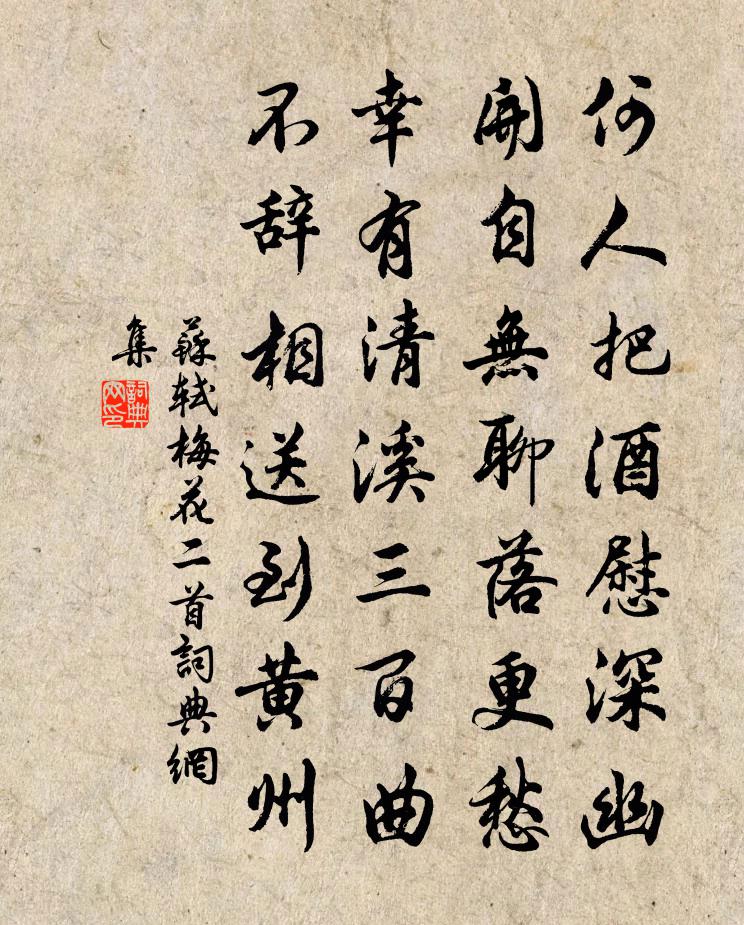 何人把酒慰深幽
開自無聊落更愁
幸有清溪三百曲
不辞相送到黄州
蘇軾梅花二首詞典網
集
詞典
网印